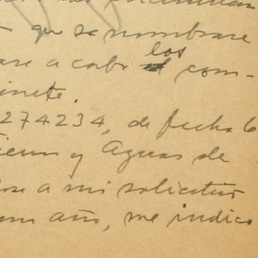 que se nombrase
a cabo los com-
inete.
274234, de fecha 6
y Aguas de
a mi solicitud
año, me indica